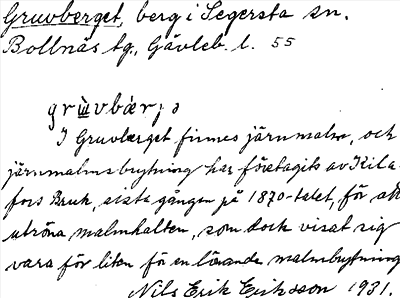 Gruvberget, berg i Segersta sn.
Bollnäs tg., Gävleb. l. 55
I Gruvberget finnes järnmalm, och
järnmalmsbrytning har företagits av Kila-
fors Bruk, sista gången på 1870-talet, för att
utröna malmhalten, som dock visat sig
vara för liten för en lönande malmbrytning
Nils Erik Eriksson 1931.